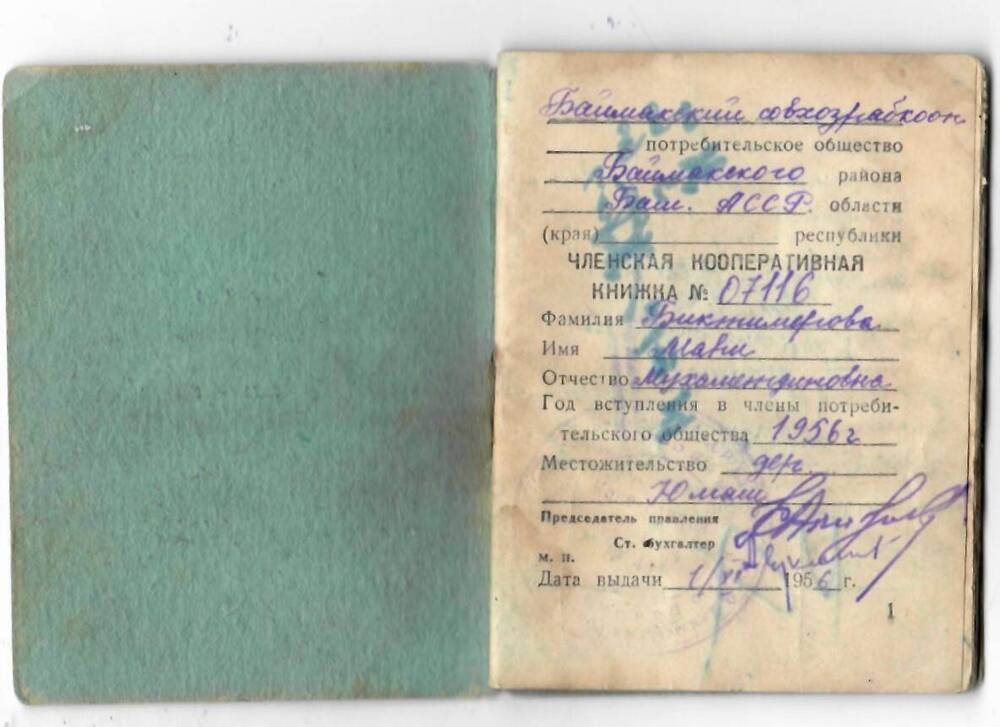 Баймакский совхозрабкооп
потребительское общество
Баймакского района
Баш. АССР. области
(край) республики
ЧЛЕНСКАЯ КООПЕРАТИВНАЯ
КНИЖКА № 07116
Фамилия Биктимерова
Имя
Отчество
Год вступления в члены потреби-
тельского общества 1956 г
Местожительство дер.
Юмаш
Председатель правления
Ст. бухгалтер
м. п.
Дата выдачи 1/XI 1956 г.
1